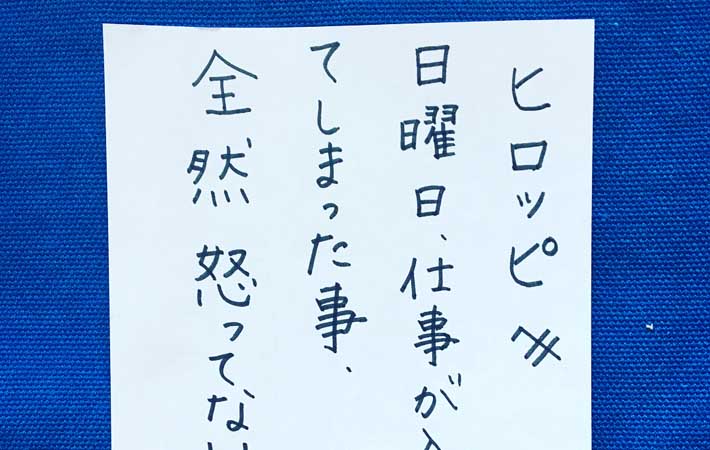 ヒロッピへ
日曜日、仕事が入
てしまった事、
全然怒ってない